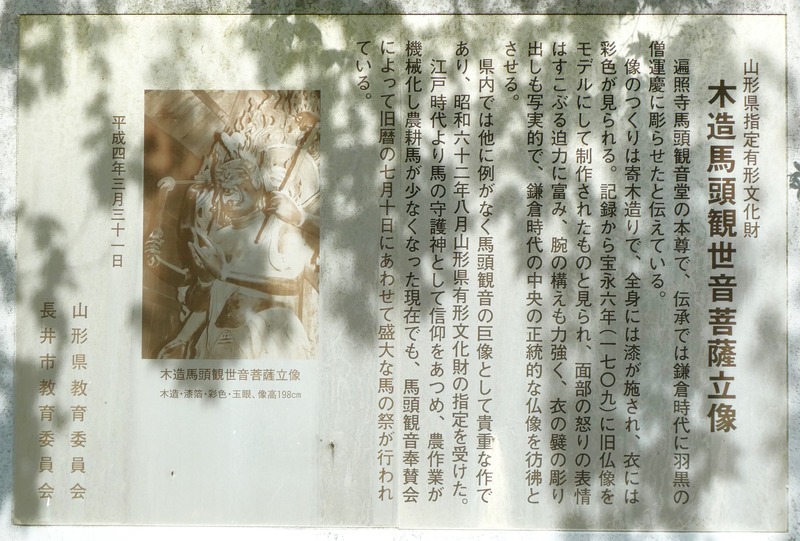 山形県指定有形文化財
木造馬頭観世音菩薩立像
遍照寺馬頭観音堂の本尊で、伝承では鎌倉時代に羽黒の
僧運慶に彫らせたと伝えている。
像のつくりは寄木造りで、全身には漆が施され、衣には
彩色が見られる。記録から宝永六年(一七〇九)に旧仏像を
モデルにして制作されたものと見られ、面部の怒りの表情
はすこぶる迫力に富み、腕の構えも力強く、衣の襞の彫り
出しも写実的で、鎌倉時代の中央の正統的な仏像を彷彿と
させる。
県内では他に例がなく馬頭観音の巨像として貴重な作で
あり、昭和六十二年八月山形県有形文化財の指定を受けた。
江戸時代より馬の守護神として信仰をあつめ、農作業が
機械化し農耕馬が少なくなった現在でも、馬頭観音奉賛会
によって旧暦の七月十日にあわせて盛大な馬の祭が行われ
ている。
木造馬頭観世音菩薩立像
木造・漆箔・彩色・玉眼、像高198cm
平成四年三月三十一日
山形県教育委員会
長井市教育委員会